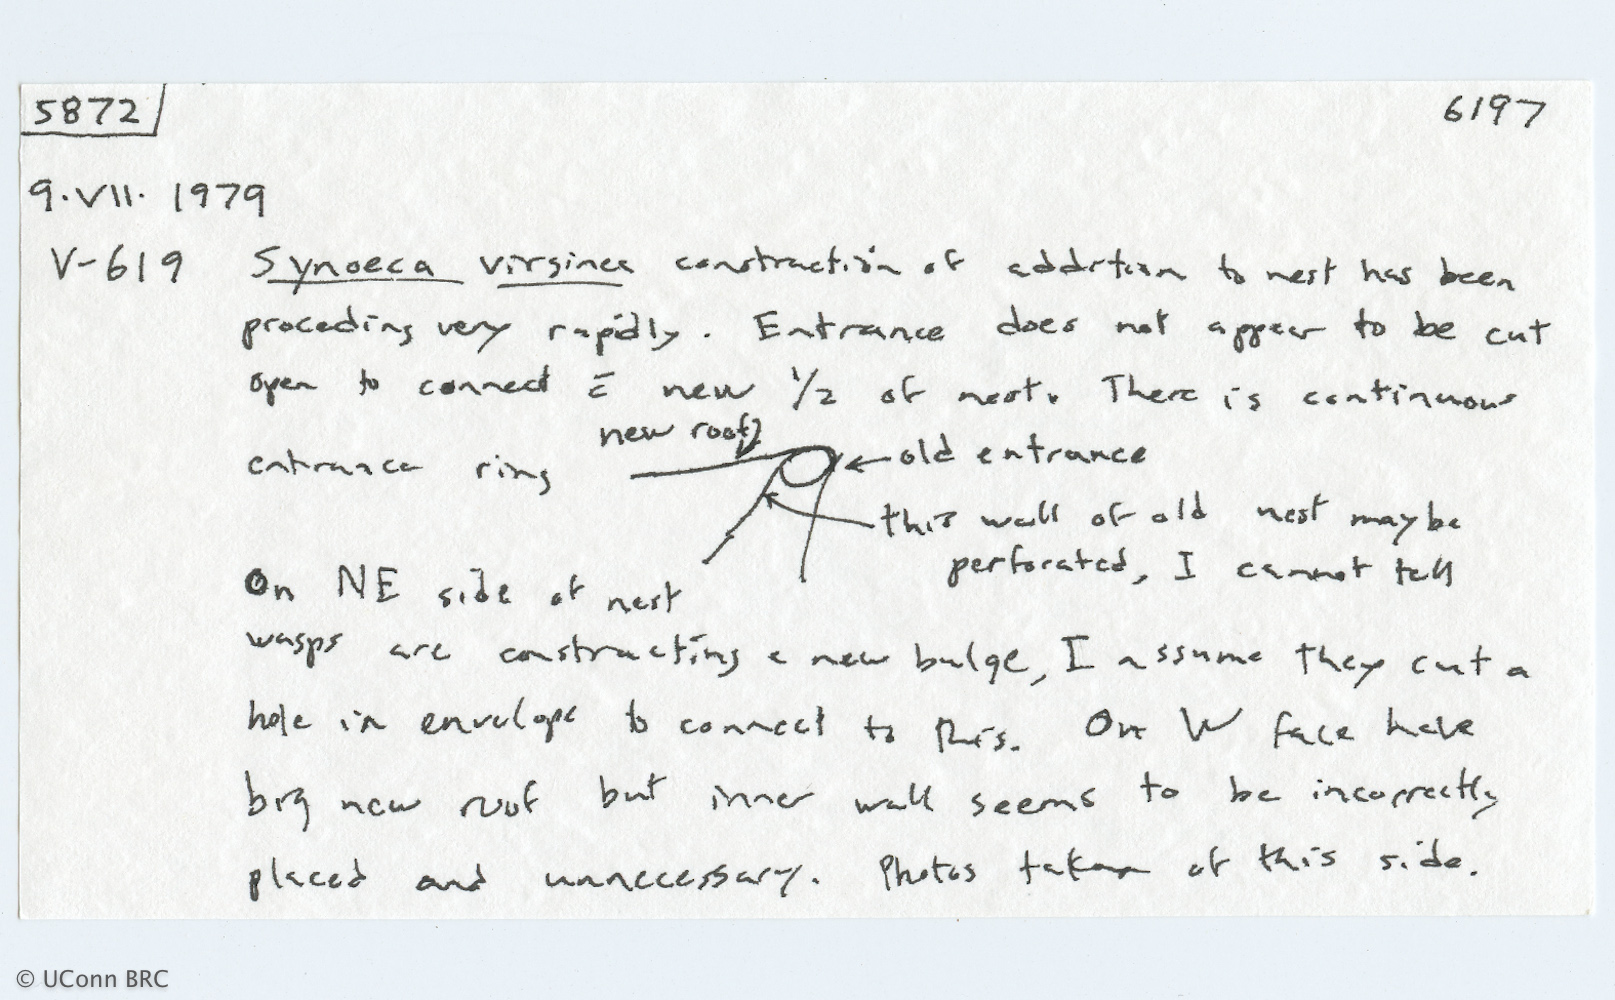 5872 6197
9.VII. 1979
V-619 Synoeca virginea construction of addition to nest has been
proceding very rapidly. Entrance does not appear to be cut
open to connect c̄ new 1/2 of nest. There is continuous
new roof
entrance ring ← old entrance
this wall of old nest maybe
perforated, I cannot tell
On NE side of nest
wasps are constructing a new bulge, I assume they cut a
hole in envelope to connect to this. On W face have
big new roof but inner wall seems to be incorrectly
placed and unnecessary. Photos taken of this side.
© UConn BRC